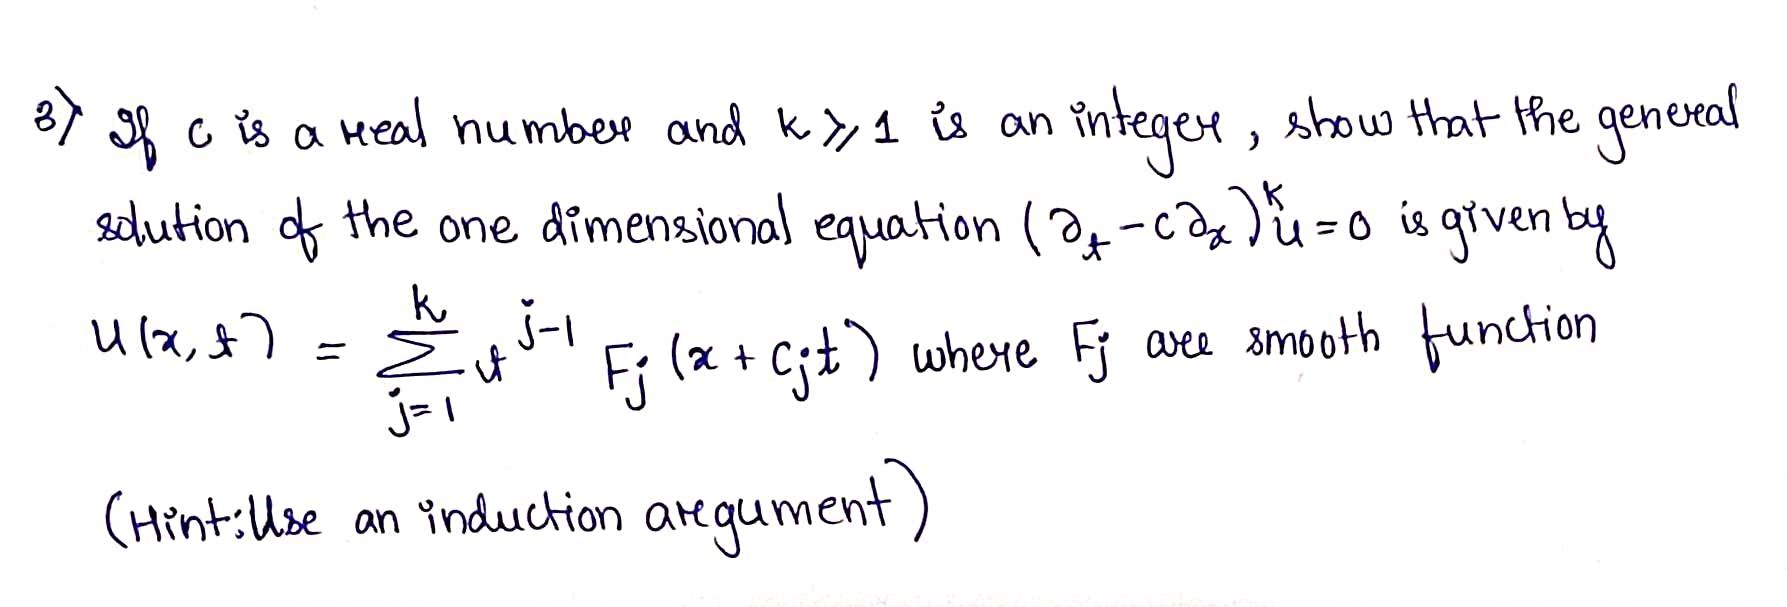 3) If c is a real number and k ⩾ 1 is an integer, show that the general
solution of the one dimensional equation (∂ₜ - c∂ₓ)ᵏu = 0 is given by
u(x,t) = ∑_{j=1}^{k} t^{j-1} F_j (x + c_j t) where F_j are smooth function
(Hint: Use an induction argument)